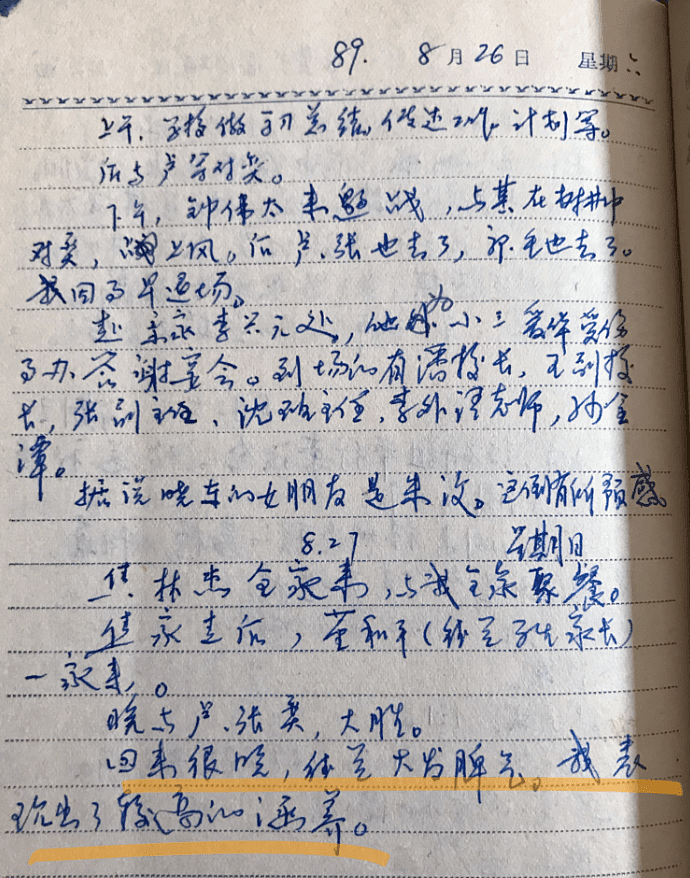 89. 8月26日 星期六
上午，学校做学习总结，住进工作，计划等。
后与卢军对奕。
下午，钟伟太来邀战，与其在树井中
对奕，占上风，后卢、张也去了，郭毛也去了。
我因了早退场。
赴京家李兴元处，他为小三
了办答谢宴会。到场的有潘校长，王副校
长，张副主任、沈班主任，李外语老师，孙金
潭。
据说晓东的女朋友是来汝。这倒有所预感。
8.27 星期日
焦林杰全家来，与我全家聚餐。
焦家走后，董和平（桂兰学生家长）
一家来。
晚与卢、张奕，大胜。
回来很晚，桂兰大发脾气。我表
现出了较高的涵养。